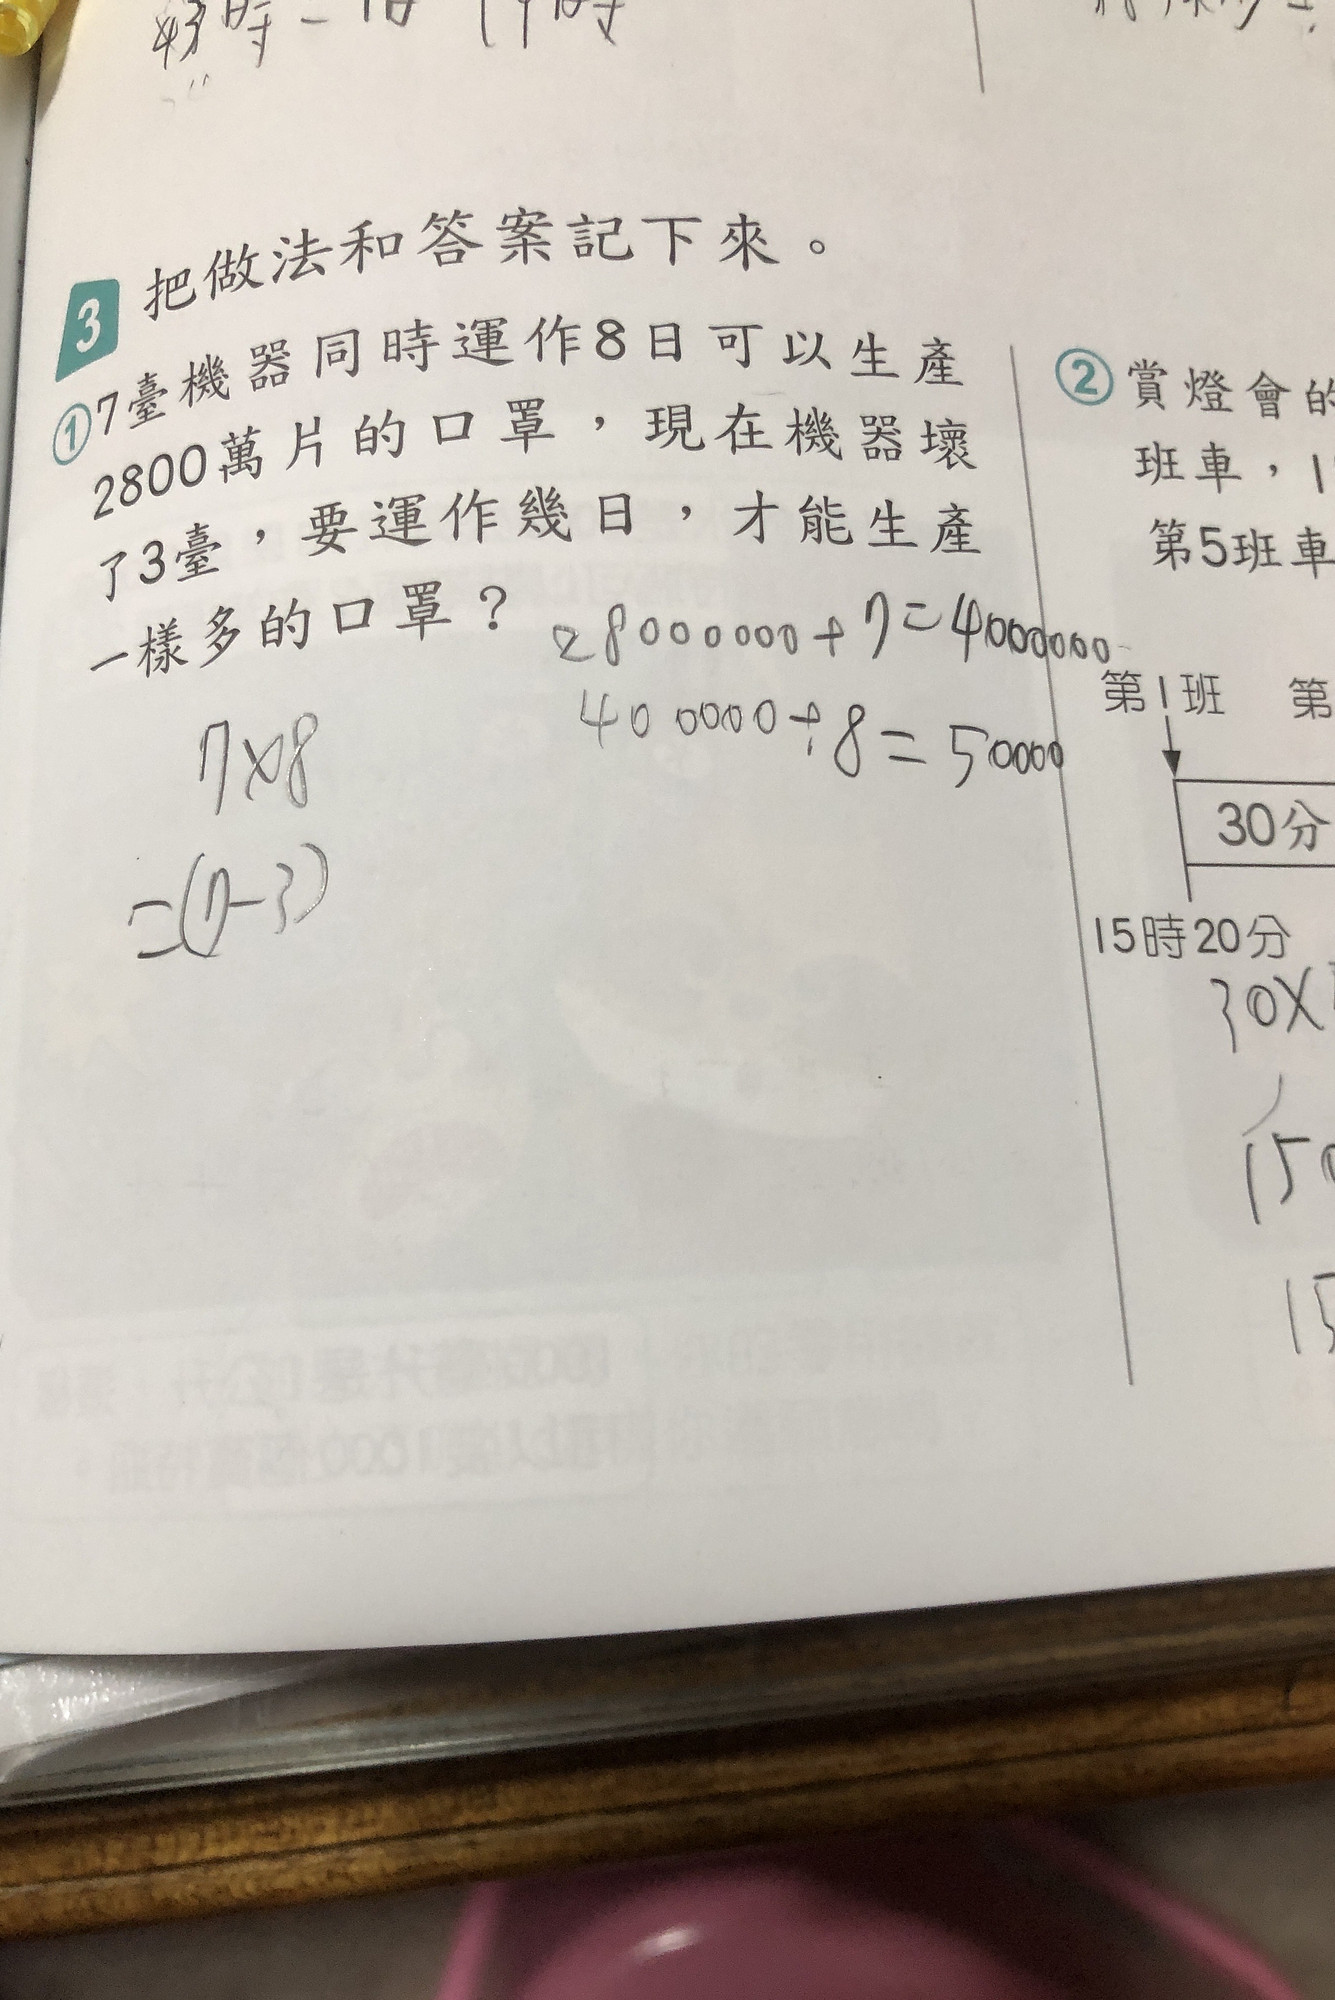 43時
3 把做法和答案記下來。
①7臺機器同時運作8日可以生產
2800萬片的口罩，現在機器壞
了3臺，要運作幾日，才能生產
一樣多的口罩？
28000000÷7=4000000
400000÷8=50000
7×8
=(7-3)
②賞燈會的
班車，1
第5班車
第1班 第
30分
15時20分
30×
150
15